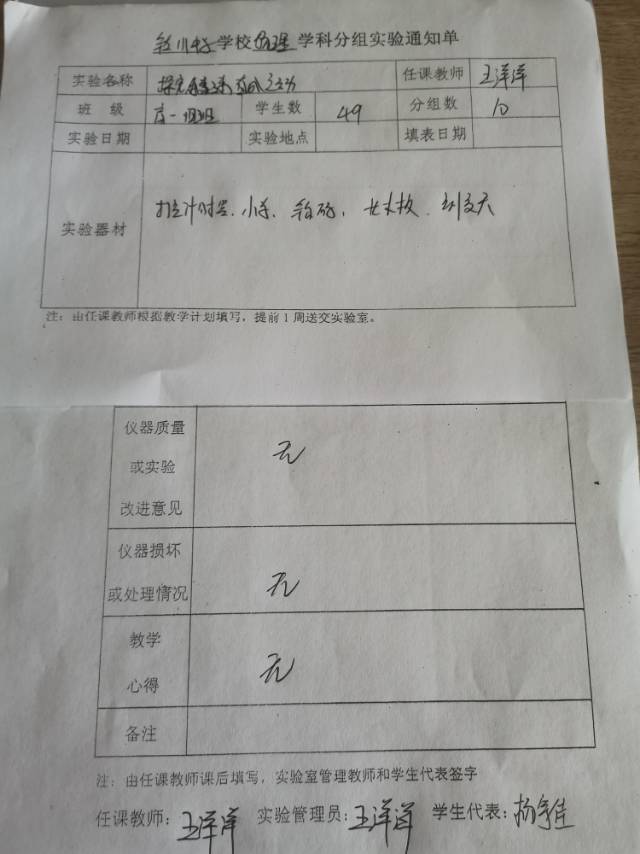 学校物理学科分组实验通知单
实验名称 探究 任课教师 王洋洋
班 级 高一 班 学生数 49 分组数 10
实验日期 实验地点 填表日期
实验器材 打点计时器、小车、 长木板、刻度尺
注：由任课教师根据教学计划填写，提前1周送交实验室。
仪器质量
或实验
改进意见
无
仪器损坏
或处理情况
无
教学
心得
无
备注
注：由任课教师课后填写，实验室管理教师和学生代表签字
任课教师：王洋洋 实验管理员：王洋洋 学生代表：杨